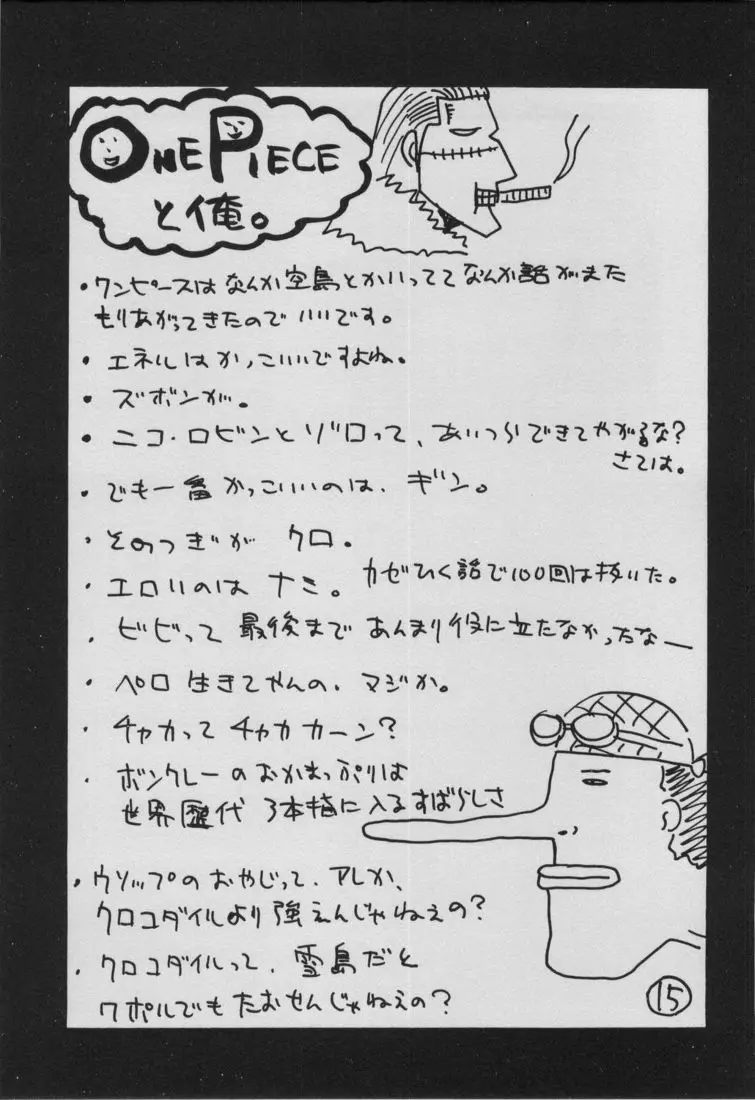 ONE PIECE
と俺。
・ワンピースはなんか空島とかいっててなんか話がまた
もりあがってきたのでいいです。
・エネルはかっこいいですよね。
・ズボンが。
・ニコ・ロビンとゾロって、あいつらできてやがるな?
さては。
・でも一番かっこいいのは、ギン。
・そのつぎが クロ。
・エロいのは ナミ。カゼひく話で100回は抜いた。
・ビビって 最後まで あんまり役に立たなかったなー
・ペロ 生きてやんの、マジか。
・チャカって チャカ カーン?
・ボンクレーのおかまっぷりは
世界歴代 3本指に入るすばらしさ
・ウソップのおやじって、アレか、
クロコダイルより強えんじゃねえの?
・クロコダイルって、雪島だと
ワポルでもたおせんじゃねえの?
15